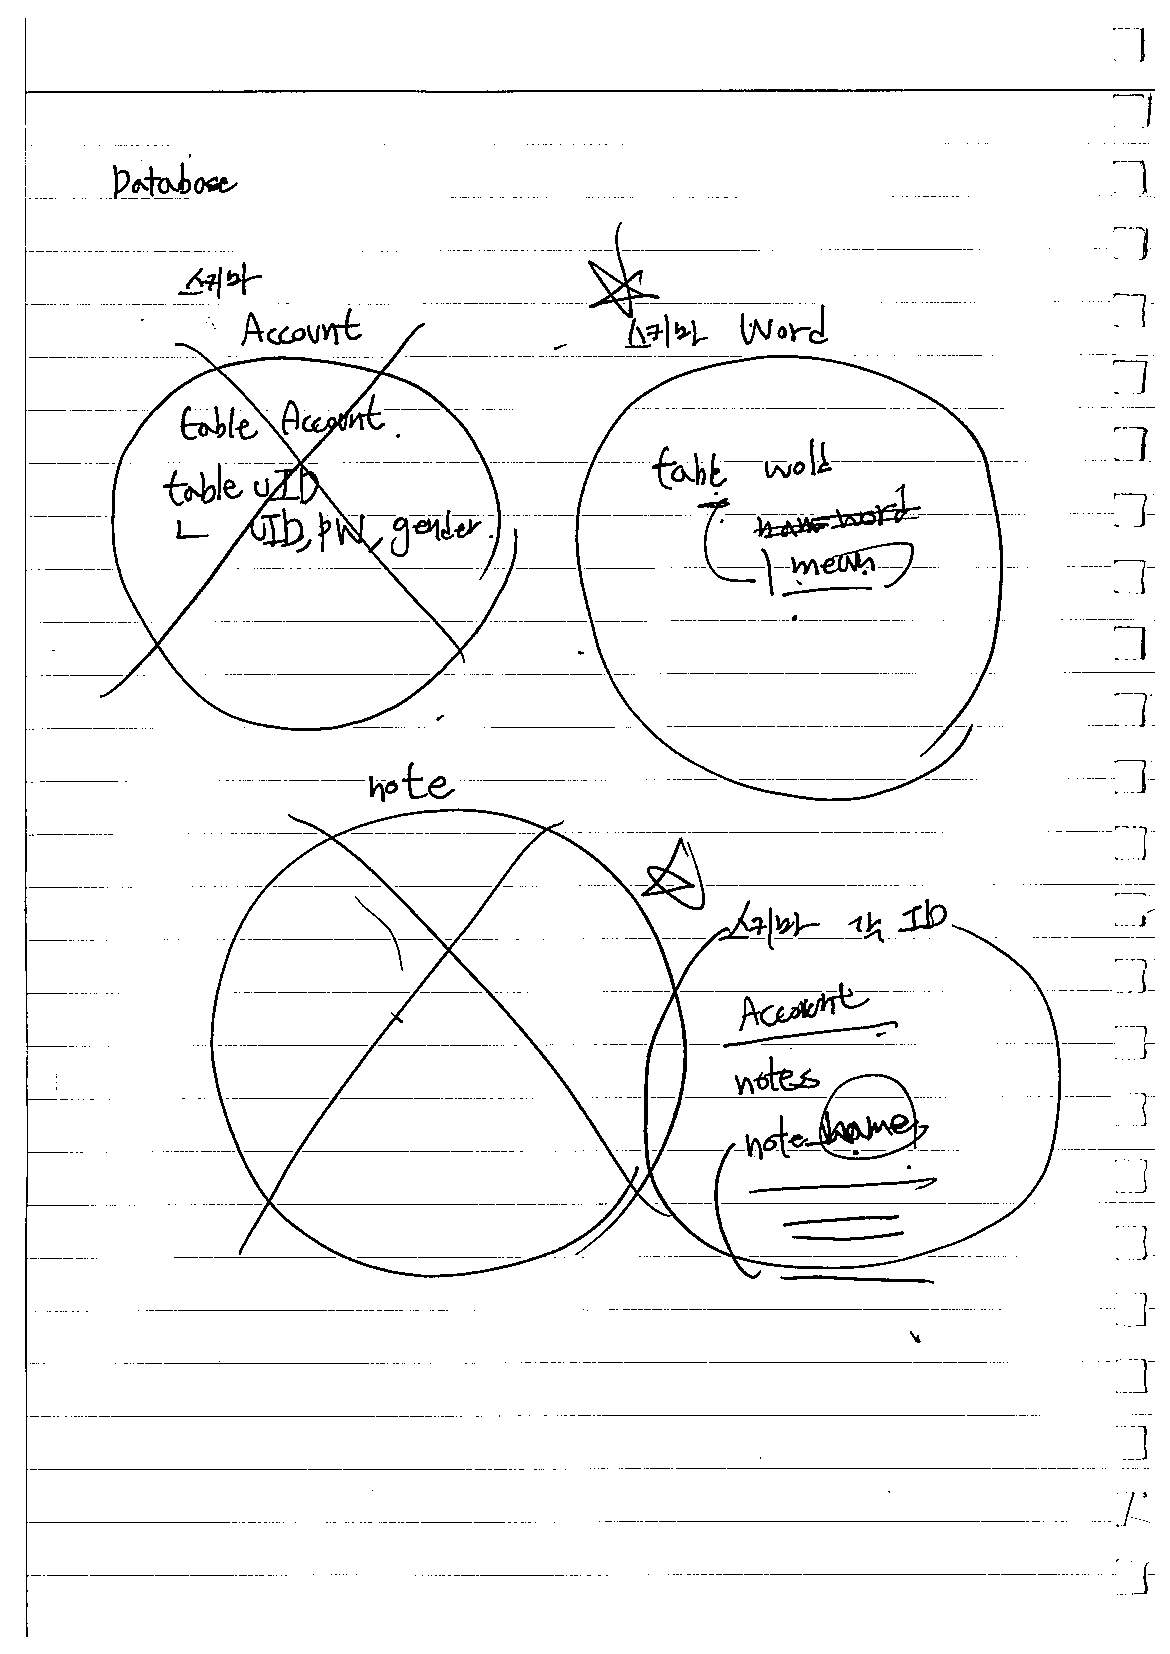 Database
스키마
Account
table Account.
table uID
UID, PW, gender.
스키마 Word
table wold
word
mean
note
스키마 각 ID
Account
notes
note name